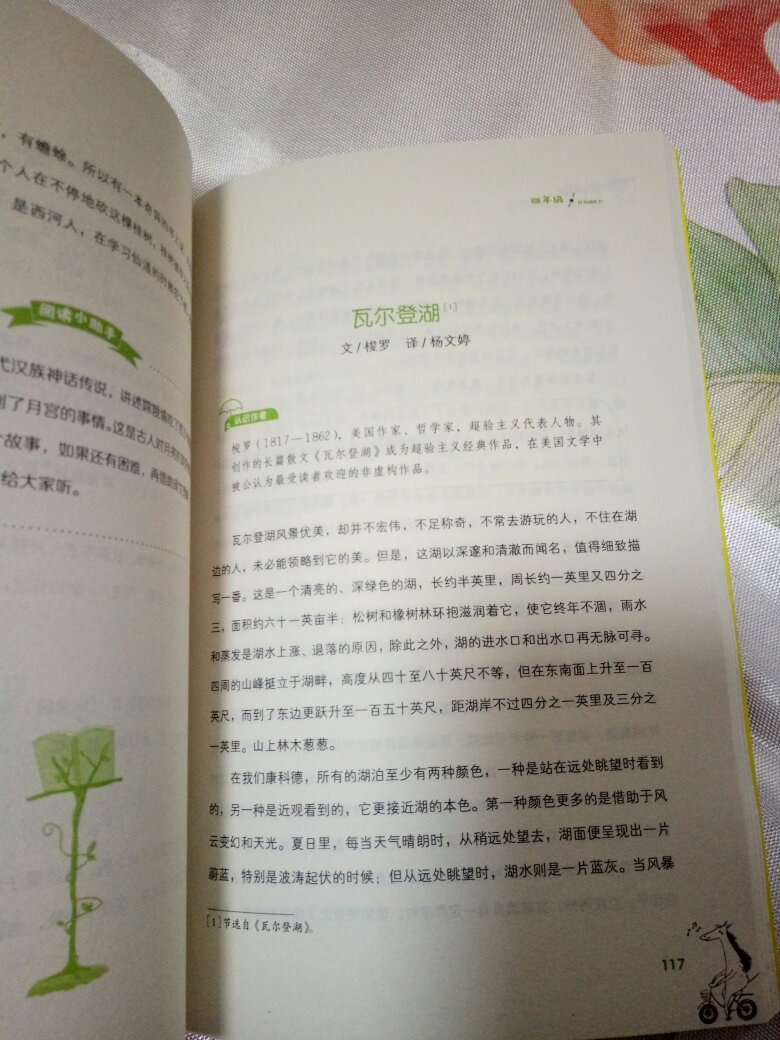 ，有蟾蜍。所以有一本奇异的书上
个人在不停地砍这棵桂树，桂树
是西河人，在学习仙道的时候犯了
阅读小助手
代汉族神话传说，讲述嫦娥偷吃了
到了月宫的事情。这是古人对月亮的
故事，如果还有困难，再借助
给大家听。
四年级
瓦尔登湖[1]
文/梭罗 译/杨文婷
认识作者
梭罗（1817—1862），美国作家、哲学家，超验主义代表人物。其
创作的长篇散文《瓦尔登湖》成为超验主义经典作品，在美国文学中
被公认为最受读者欢迎的非虚构作品。
瓦尔登湖风景优美，却并不宏伟，不足称奇，不常去游玩的人，不住在湖
边的人，未必能领略到它的美。但是，这湖以深邃和清澈而闻名，值得细致描
写一番。这是一个清亮的、深绿色的湖，长约半英里，周长约一英里又四分之
三，面积约六十一英亩半；松树和橡树林环抱滋润着它，使它终年不涸，雨水
和蒸发是湖水上涨、退落的原因，除此之外，湖的进水口和出水口再无脉可寻。
四周的山峰挺立于湖畔，高度从四十至八十英尺不等，但在东南面上升至一百
英尺，而到了东边更跃升至一百五十英尺，距湖岸不过四分之一英里及三分之
一英里。山上林木葱葱。
在我们康科德，所有的湖泊至少有两种颜色，一种是站在远处眺望时看到
的，另一种是近观看到的，它更接近湖的本色。第一种颜色更多的是借助于风
云变幻和天光。夏日里，每当天气晴朗时，从稍远处望去，湖面便呈现出一片
蔚蓝，特别是波涛起伏的时候；但从远处眺望时，湖水则是一片蓝灰。当风暴
[1]节选自《瓦尔登湖》。
117